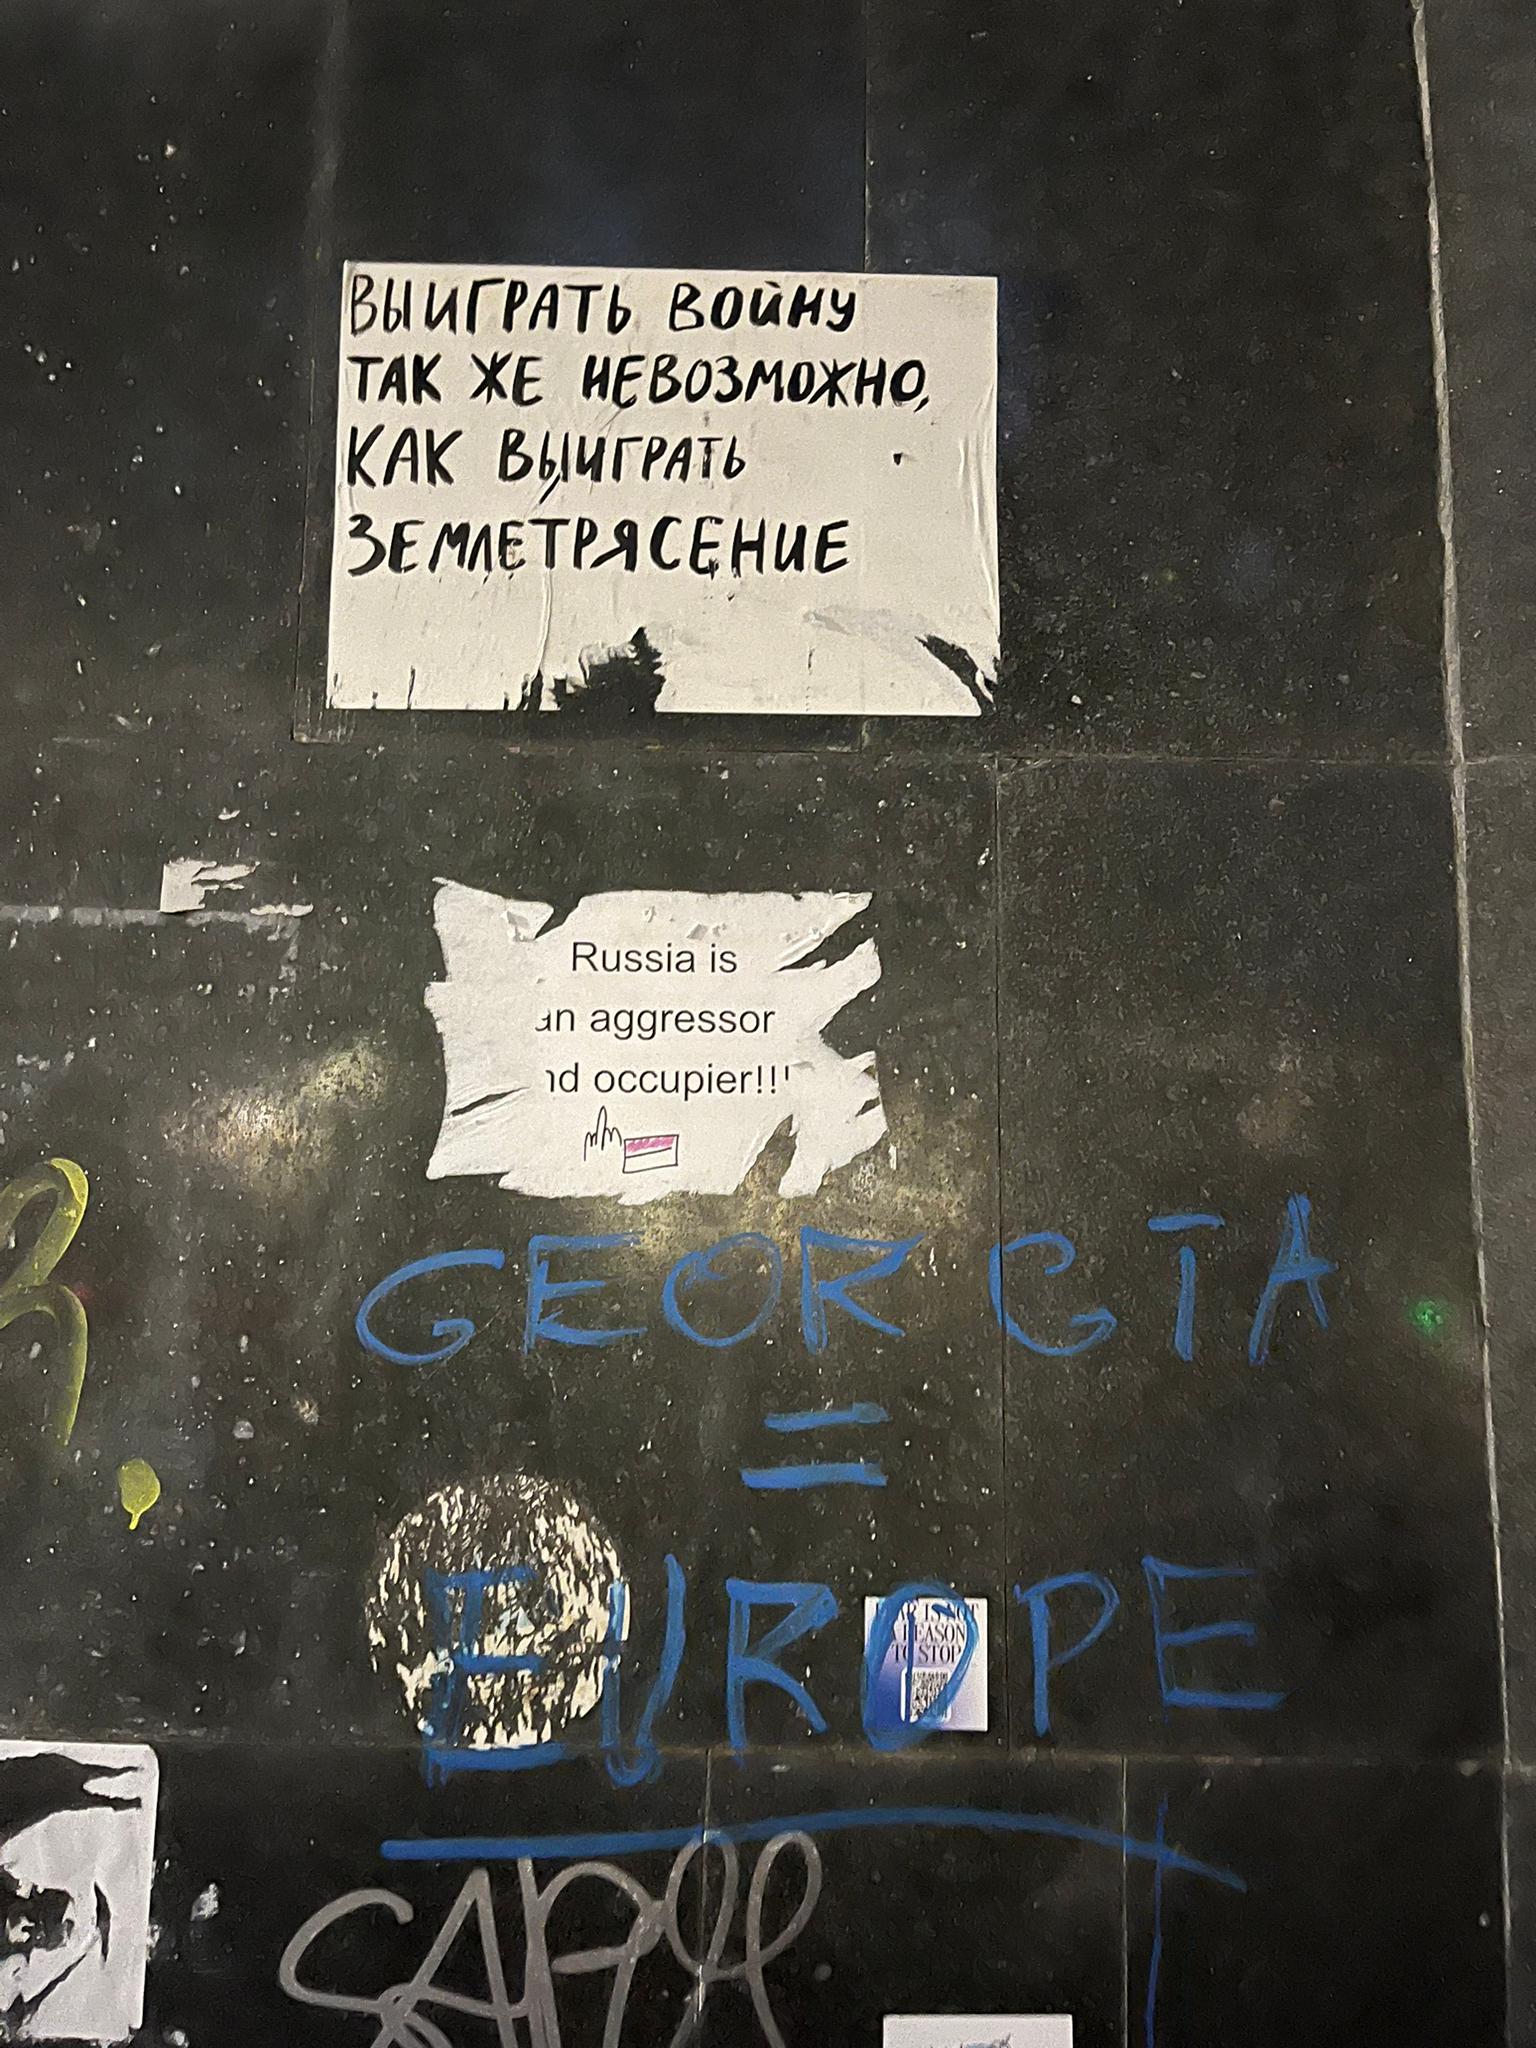 ВЫИГРАТЬ ВОЙНУ
ТАК ЖЕ НЕВОЗМОЖНО,
КАК ВЫИГРАТЬ
ЗЕМЛЕТРЯСЕНИЕ
Russia is
an aggressor
nd occupier!!!
GEORGIA
=
EUROPE
IS NOT
REASON
TO STOP